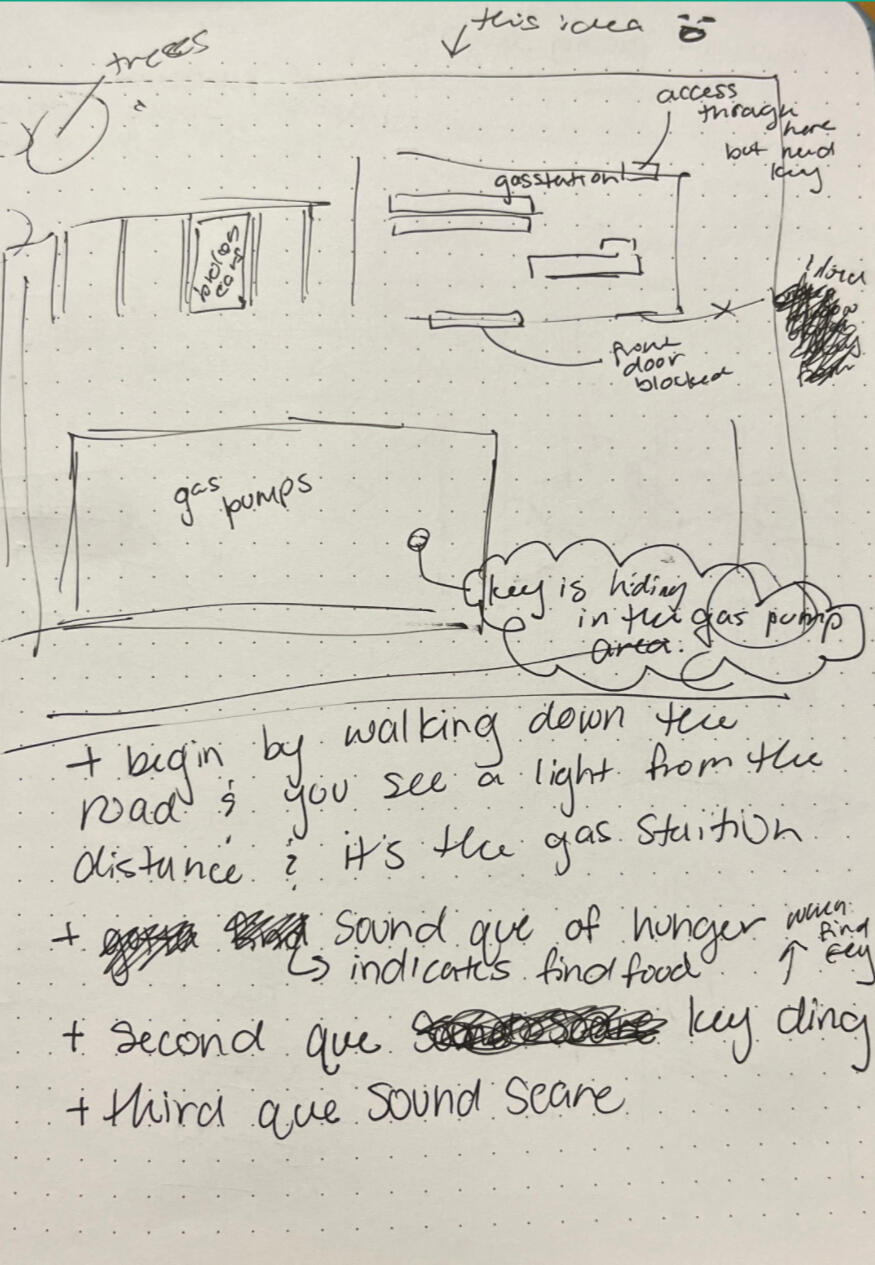 this idea
trees
access
through
here
but need
key
gasstation
front
door
blocked
gas
pumps
key is hiding
in the gas pump
area.
+ begin by walking down the
road & you see a light from the
distance & it's the gas staition
+ sound que of hunger
when
find
key
indicates find food
+ second que key ding
+ third que sound scare